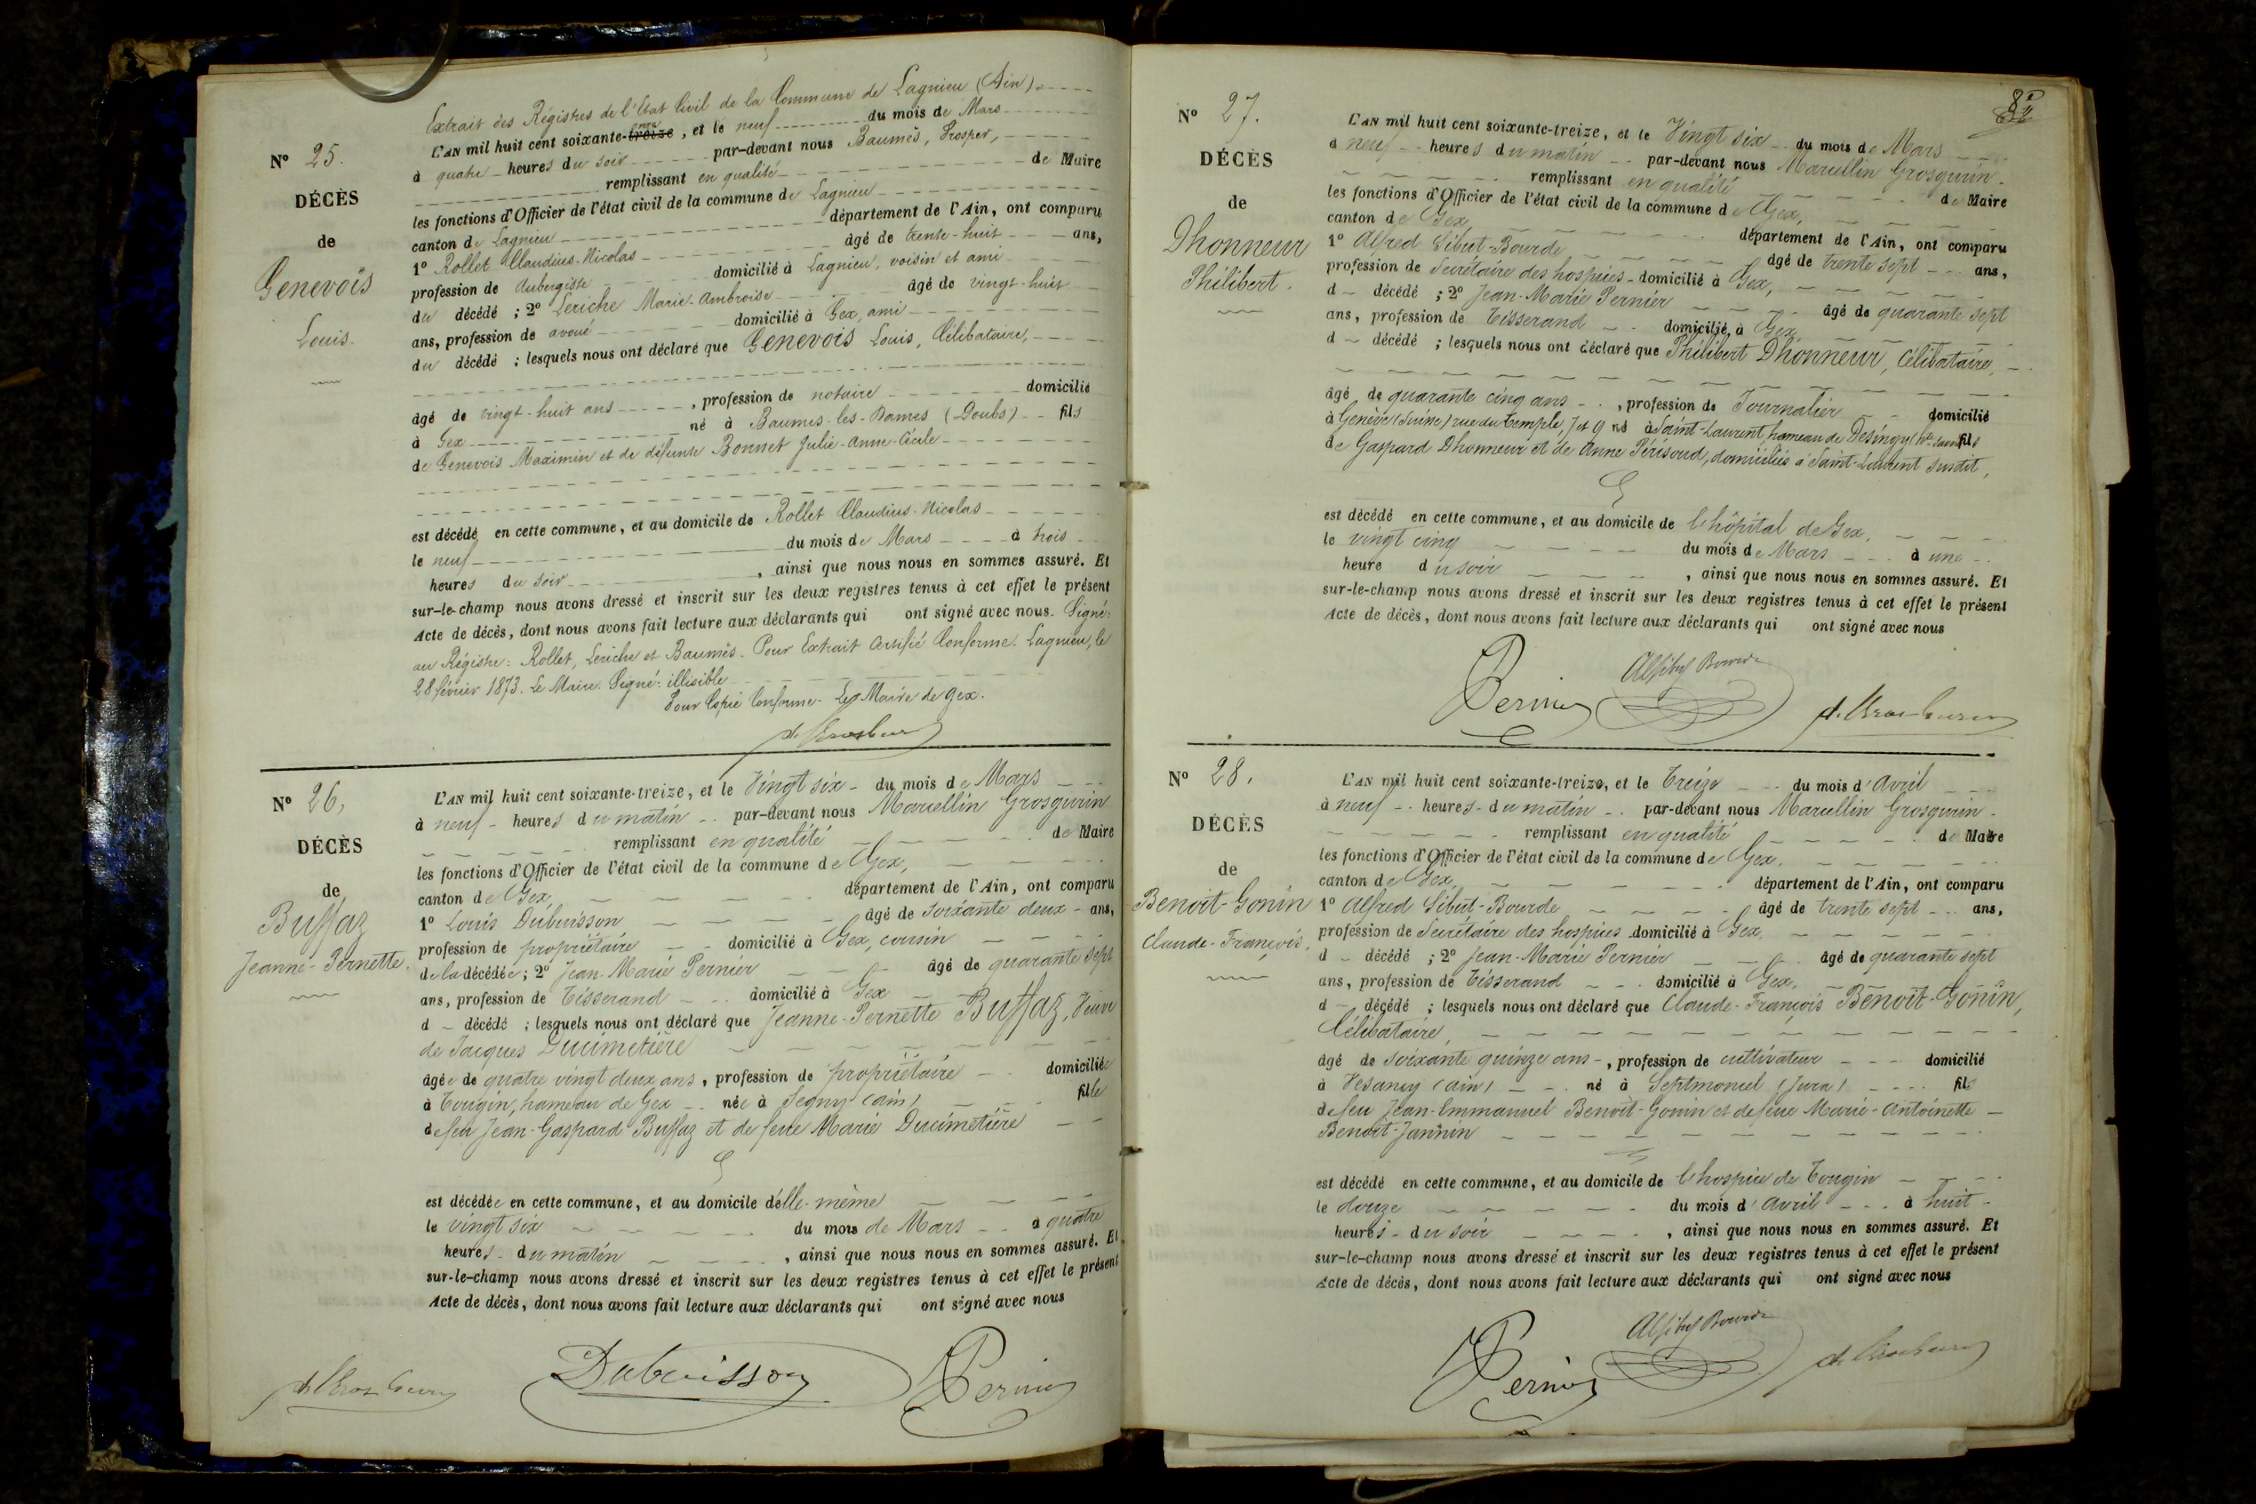 Nº 25.
DÉCÈS
de
Genevois
Louis.
Extrait des Régistres de l'Etat Civil de la Commune de Lagnieu (Ain).
L'AN mil huit cent soixante-treize, et le neuf du mois de Mars
à quatre heures du soir par-devant nous Baumès, Prosper,
remplissant en qualité de Maire
les fonctions d'Officier de l'état civil de la commune de Lagnieu
canton de Lagnieu département de l'Ain, ont comparu
1º Rollet Claudius-Nicolas âgé de trente-huit ans,
profession de Aubergiste domicilié à Lagnieu, voisin et ami
du décédé ; 2º Leriche Marie-Ambroise âgé de vingt-huit
ans, profession de avoué domicilié à Gex, ami
du décédé ; lesquels nous ont déclaré que Genevois Louis, Célibataire,
âgé de vingt-huit ans, profession de notaire domicilié
à Gex né à Baumes-les-Dames (Doubs) fils
de Genevois Maximin et de défunte Bonnet Julie-Anne-Cécile
est décédé en cette commune, et au domicile de Rollet Claudius-Nicolas
le neuf du mois de Mars à trois
heures du soir, ainsi que nous nous en sommes assuré. Et
sur-le-champ nous avons dressé et inscrit sur les deux registres tenus à cet effet le présent
Acte de décès, dont nous avons fait lecture aux déclarants qui ont signé avec nous. Signé:
au Régistre: Rollet, Leriche et Baumès. Pour Extrait Certifié Conforme. Lagnieu, le
28 février 1873. Le Maire. Signé: illisible
Pour Copie Conforme. Le Maire de Gex.
Nº 26,
DÉCÈS
de
Buffaz
Jeanne-Pernette.
L'AN mil huit cent soixante-treize, et le Vingt six du mois de Mars
à neuf heures du matin par-devant nous Marcellin Grosgurin
remplissant en qualité de Maire
les fonctions d'Officier de l'état civil de la commune de Gex,
canton de Gex, département de l'Ain, ont comparu
1º Louis Dubuisson âgé de soixante deux ans,
profession de propriétaire domicilié à Gex, cousin
de la décédée ; 2º Jean-Marie Pernier âgé de quarante sept
ans, profession de Tisserand domicilié à Gex
d décédé ; lesquels nous ont déclaré que Jeanne-Pernette Buffaz, Veuve
de Jacques Ducimetière
âgée de quatre vingt deux ans, profession de propriétaire domiciliée
à Tougin, hameau de Gex née à Segny (ain) fille
de feu Jean-Gaspard Buffaz et de feue Marie Ducimetière
est décédée en cette commune, et au domicile d'elle-même
le vingt six du mois de Mars à quatre
heures du matin, ainsi que nous nous en sommes assuré. Et
sur-le-champ nous avons dressé et inscrit sur les deux registres tenus à cet effet le présent
Acte de décès, dont nous avons fait lecture aux déclarants qui ont signé avec nous
Dubuisson
Pernier
Nº 27.
DÉCÈS
de
Dhonneur
Philibert.
L'AN mil huit cent soixante-treize, et le Vingt six du mois de Mars
à neuf heures du matin par-devant nous Marcellin Grosgurin
remplissant en qualité de Maire
les fonctions d'Officier de l'état civil de la commune de Gex,
canton de Gex département de l'Ain, ont comparu
1º Alfred Sibut-Bourde âgé de trente sept ans,
profession de Secrétaire des hospices domicilié à Gex,
d décédé ; 2º Jean-Marie Pernier âgé de quarante sept
ans, profession de Tisserand domicilié à Gex
d décédé ; lesquels nous ont déclaré que Philibert Dhonneur, Célibataire,
âgé de quarante cinq ans, profession de Journalier domicilié
à Genève (Suisse) rue du temple, 7 et 9 né à Saint-Laurent hameau de Desingy (hte savoie) fils
de Gaspard Dhonneur et de Anne Périsoud, domiciliés à Saint-Laurent susdit,
est décédé en cette commune, et au domicile de l'hôpital de Gex,
le vingt cinq du mois de Mars à une
heure du soir, ainsi que nous nous en sommes assuré. Et
sur-le-champ nous avons dressé et inscrit sur les deux registres tenus à cet effet le présent
Acte de décès, dont nous avons fait lecture aux déclarants qui ont signé avec nous
Pernier
Nº 28.
DÉCÈS
de
Benoit-Gonin
Claude-François.
L'AN mil huit cent soixante-treize, et le Treize du mois d'Avril
à neuf heures du matin par-devant nous Marcellin Grosgurin
remplissant en qualité de Maire
les fonctions d'Officier de l'état civil de la commune de Gex.
canton de Gex, département de l'Ain, ont comparu
1º Alfred Sibut-Bourde âgé de trente sept ans,
profession de Secrétaire des hospices domicilié à Gex
d décédé ; 2º Jean-Marie Pernier âgé de quarante sept
ans, profession de Tisserand domicilié à Gex,
d décédé ; lesquels nous ont déclaré que Claude-François Benoit-Gonin,
Célibataire,
âgé de soixante quinze ans, profession de cultivateur domicilié
à Vesancy (ain) né à Septmoncel (Jura) fils
de feu Jean-Emmanuel Benoit-Gonin et de feue Marie-Antoinette
Benoit-Jannin
est décédé en cette commune, et au domicile de l'hospice de Tougin
le douze du mois d'avril à huit
heures du soir, ainsi que nous nous en sommes assuré. Et
sur-le-champ nous avons dressé et inscrit sur les deux registres tenus à cet effet le présent
Acte de décès, dont nous avons fait lecture aux déclarants qui ont signé avec nous
Pernier